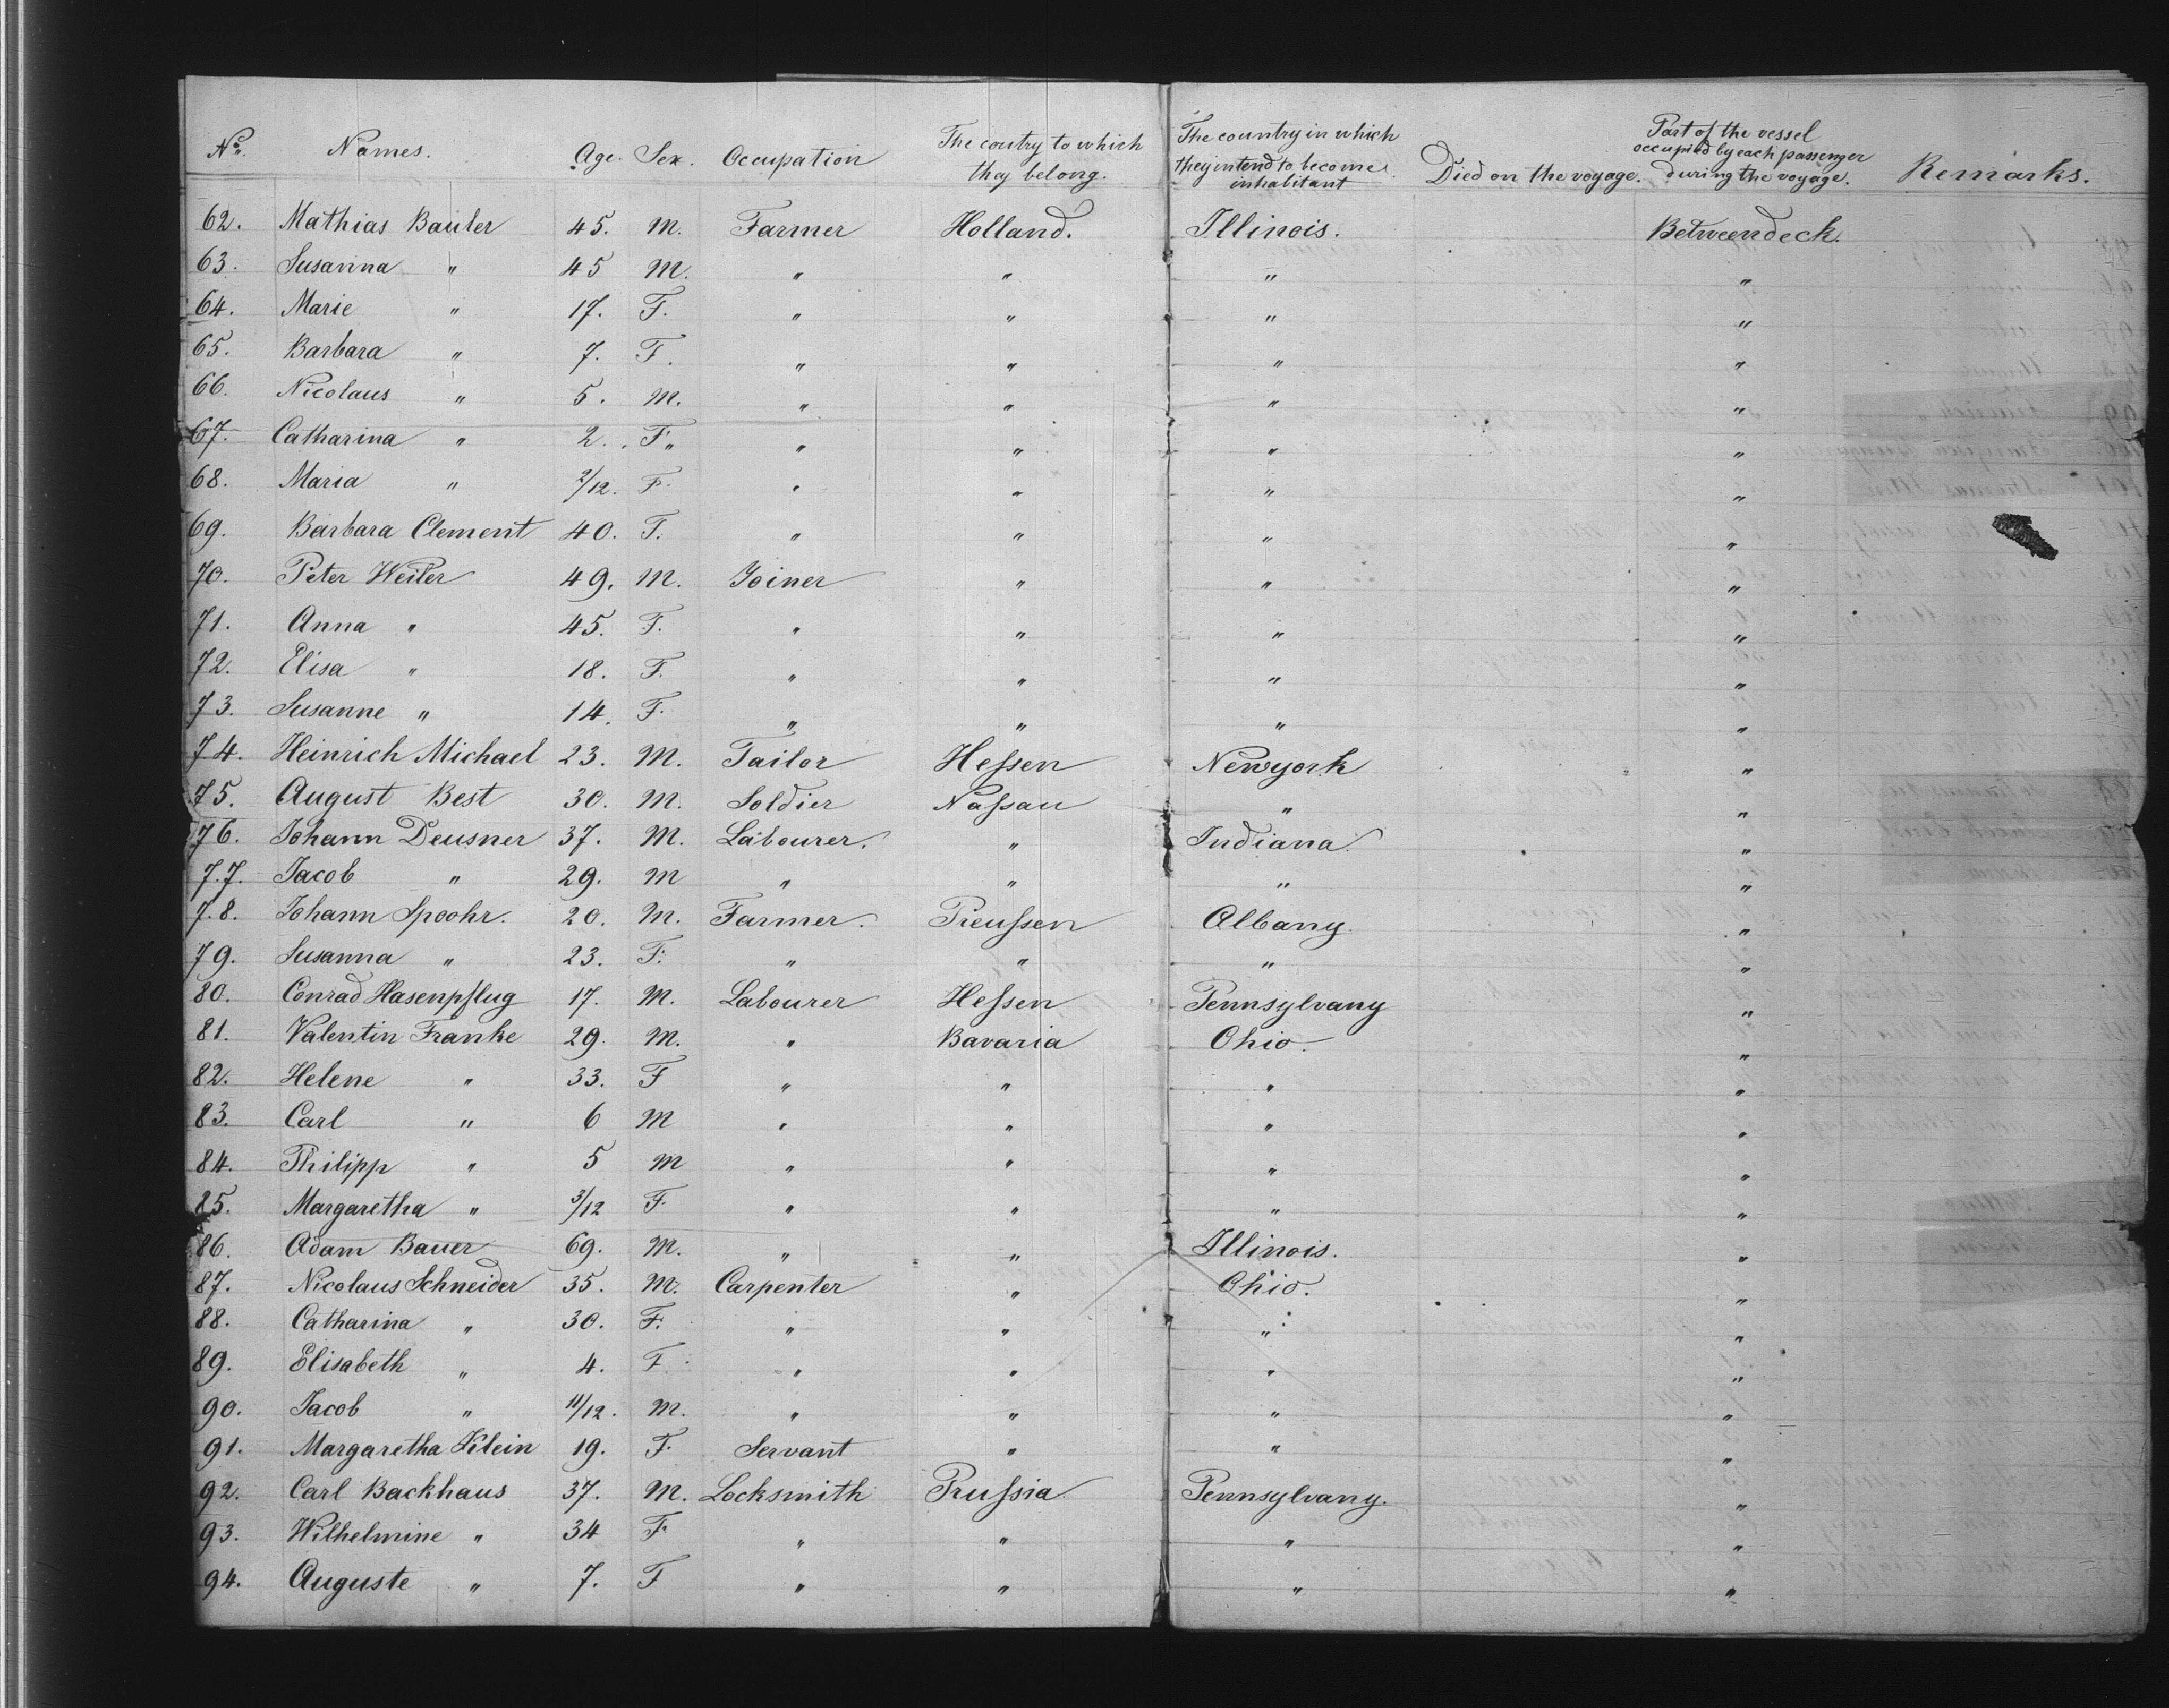 No. Names. Age. Sex. Occupation The coutry to which they belong. The country in which they intend to become inhabitant Died on the voyage. Part of the vessel occupied by each passenger during the voyage. Remarks.
62. Mathias Bauler 45. M. Farmer Holland. Illinois. Betweendeck.
63. Susanna " 45 M. " " " "
64. Marie " 17. F. " " " "
65. Barbara " 7. F. " " " "
66. Nicolaus " 5. M. " " " "
67. Catharina " 2. F. " " " "
68. Maria " 2/12. F. " " " "
69. Barbara Clement 40. F. " " " "
70. Peter Weiler 49. M. Joiner " " "
71. Anna " 45. F. " " " "
72. Elisa " 18. F. " " " "
73. Susanne " 14. F. " " " "
74. Heinrich Michael 23. M. Tailor Heſsen Newyork "
75. August Best 30. M. Soldier Naſsau " "
76. Johann Deusner 37. M. Labourer. " Indiana. "
77. Jacob " 29. M " " " "
78. Johann Spoohr. 20. M. Farmer. Preuſsen Albany. "
79. Susanna " 23. F. " " " "
80. Conrad Hasenpflug 17. M. Labourer Heſsen Pennsylvany "
81. Valentin Franke 29. M. " Bavaria Ohio. "
82. Helene " 33. F " " " "
83. Carl " 6 M " " " "
84. Philipp " 5 M " " " "
85. Margaretha " 3/12 F. " " " "
86. Adam Bauer 69. M. " " Illinois. "
87. Nicolaus Schneider 35. M. Carpenter " Ohio. "
88. Catharina " 30. F. " " " "
89. Elisabeth " 4. F. " " " "
90. Jacob " 11/12. M. " " " "
91. Margaretha Klein 19. F. Servant " " "
92. Carl Backhaus 37. M. Locksmith Pruſsia Pennsylvany. "
93. Wilhelmine " 34 F " " " "
94. Auguste " 7. F " " " "